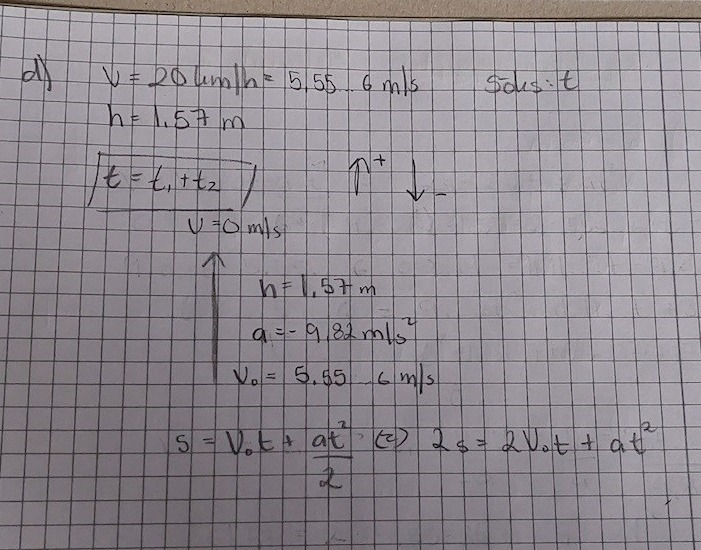 d) V = 20 km/h = 5,55...6 m/s Söks: t
h = 1,57 m
t = t₁ + t₂ ↑+ ↓-
V = 0 m/s
h = 1,57 m
a = -9,82 m/s²
V₀ = 5.55...6 m/s
s = V₀t + at²/2 (=) 2s = 2V₀t + at²